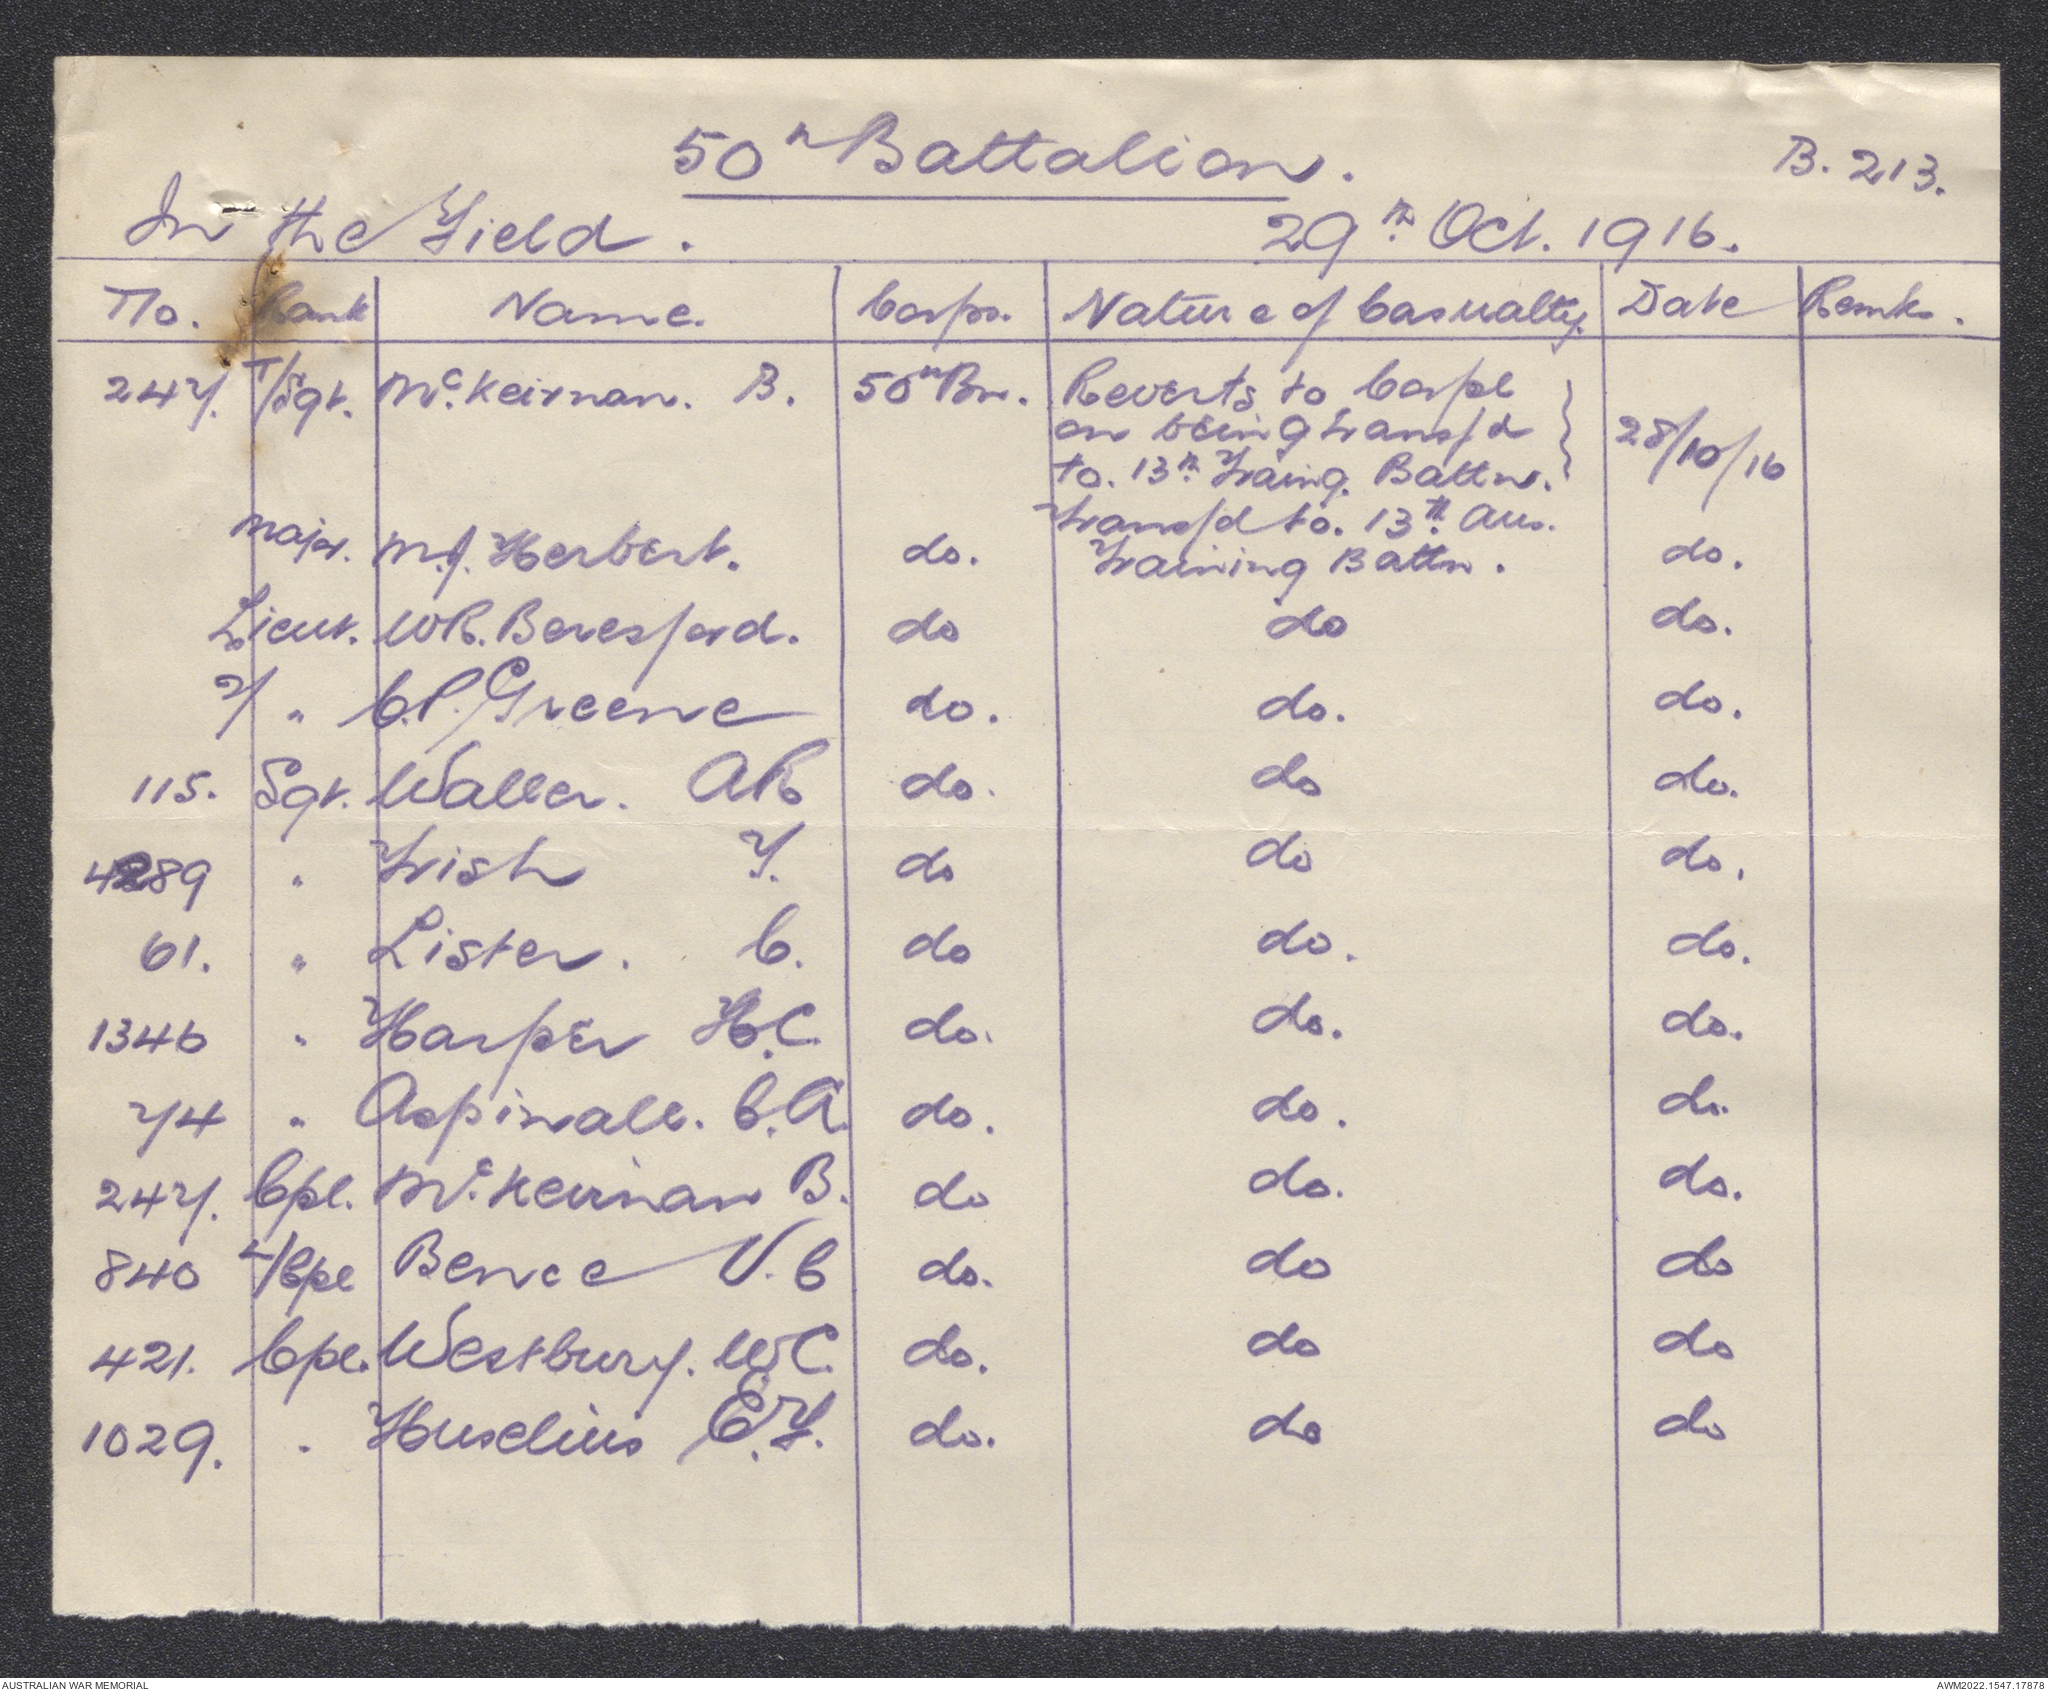 50th Battalion.
B. 213.
In the Field.
29th Oct. 1916.
No. Rank Name. Corps. Nature of Casualty. Date Remks.
247. T/Sgt. McKeirnan. B. 50th Bn. Reverts to Corpl
on being transfd
to. 13th Traing. Battn. 28/10/16
Major. M.J. Herbert. do. Transfd to. 13th Aus.
Training Battn. do.
Lieut. W.R. Beresford. do do do.
2/ " C.P. Greene do. do. do.
115. Sgt. Waller. A R do. do do.
4289 " Irish F. do do do.
61. " Lister. C. do do. do.
1346 " Harper H.C. do. do. do.
74 " Aspinall. C.A. do. do. do.
247. Cpl. McKeirnan B. do do. do.
840 L/Cpl Bence V. C do. do do
421. Cpl. Westbury. W C. do. do do
1029. " Huselius E.F. do. do do
AUSTRALIAN WAR MEMORIAL
AWM2022.1547.17878